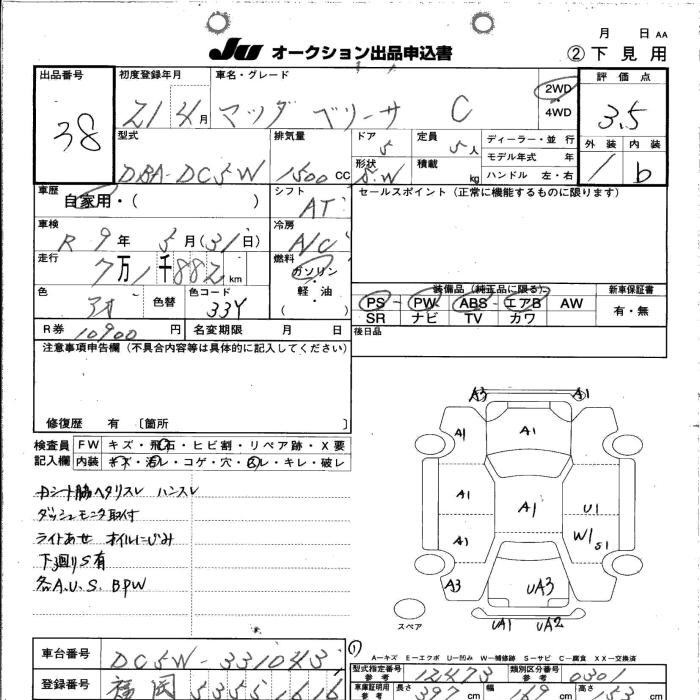 月 日 AA
JU オークション出品申込書 ②下見用
出品番号 38
初度登録年月 21 4月
車名・グレード マツダ ベリーサ C
2WD
4WD
評価点 3.5
外装 1 内装 b
型式 DBA-DC5W
排気量 1500 CC
ドア 5
形状 S.W
定員 5人
積載 kg
ディーラー・並行
モデル年式 年
ハンドル 左・右
車歴 自家用・( )
シフト AT
セールスポイント (正常に機能するものに限ります)
車検 R 9年 5月(31日)
冷房 A/C
走行 7万1千882 km
燃料 ガソリン
軽・油
( )
色 色替 色コード 33Y
装備品 (純正品に限る) 新車保証書
PS - PW - ABS - エアB AW 有・無
SR ナビ TV カワ
R券 10900 円 名変期限 月 日 後日品
注意事項申告欄 (不具合内容等は具体的に記入してください)
修復歴 有 〔箇所 〕
検査員 FW キズ・飛石・ヒビ割・リペア跡・X要
記入欄 内装 キズ・汚レ・コゲ・穴・スレ・キレ・破レ
ハンスレ
ダッシュモニタ取付
ライトあせ オイルにじみ
下廻りS有
各A.U.S. BPW
A3 A1
A1 A1
A1 A1 U1
A1 W1 S1
A3 UA3
スペア UA1 UA2
A-キズ E-エクボ U-凹み W-補修跡 S-サビ C-腐食 XX-交換済
車台番号 DC5W-331043
型式指定番号 参考 12473 類別区分番号 参考 0301
登録番号 福岡 535 5 1616
車庫証明用 参考 長さ 397 cm 幅 169 cm 高さ 153